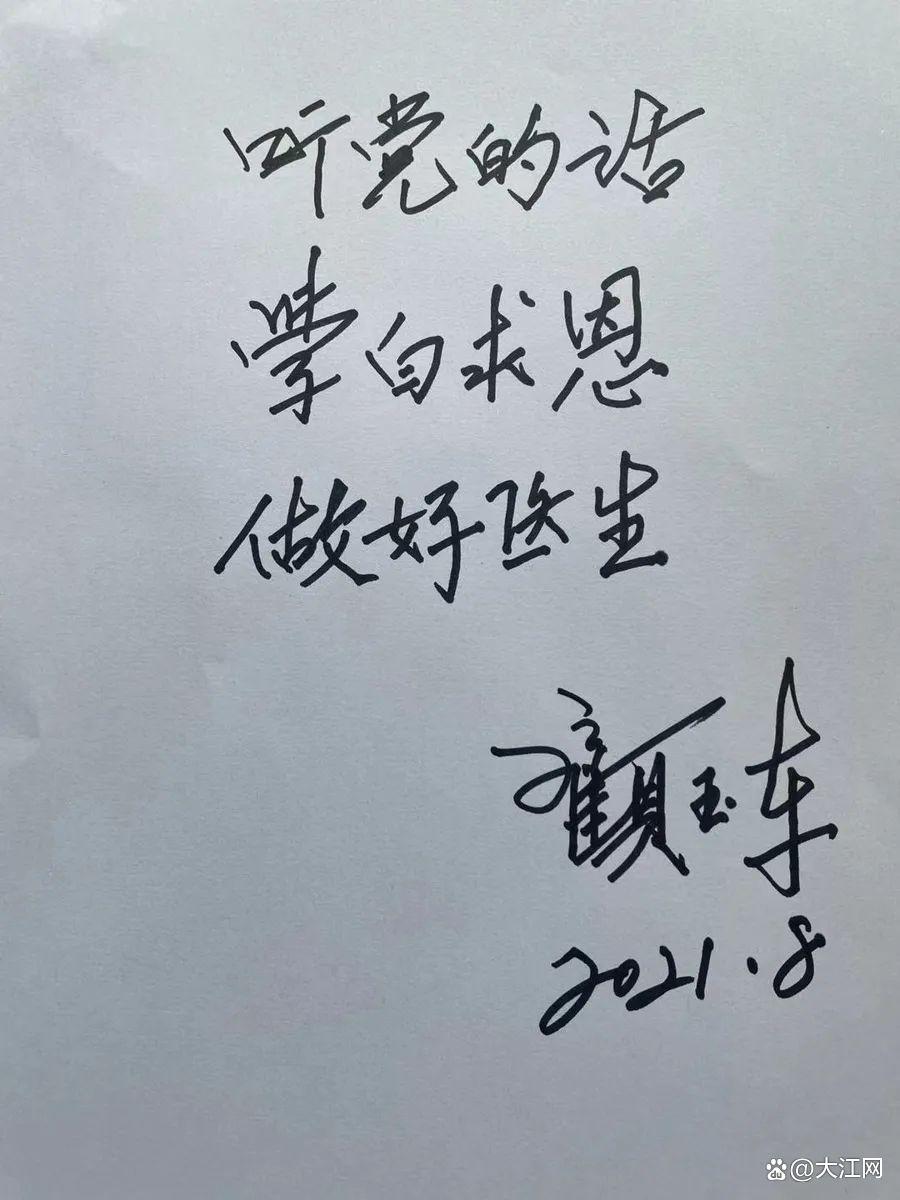 听党的话
学白求恩
做好医生
顾玉东
2021.8
@大江网